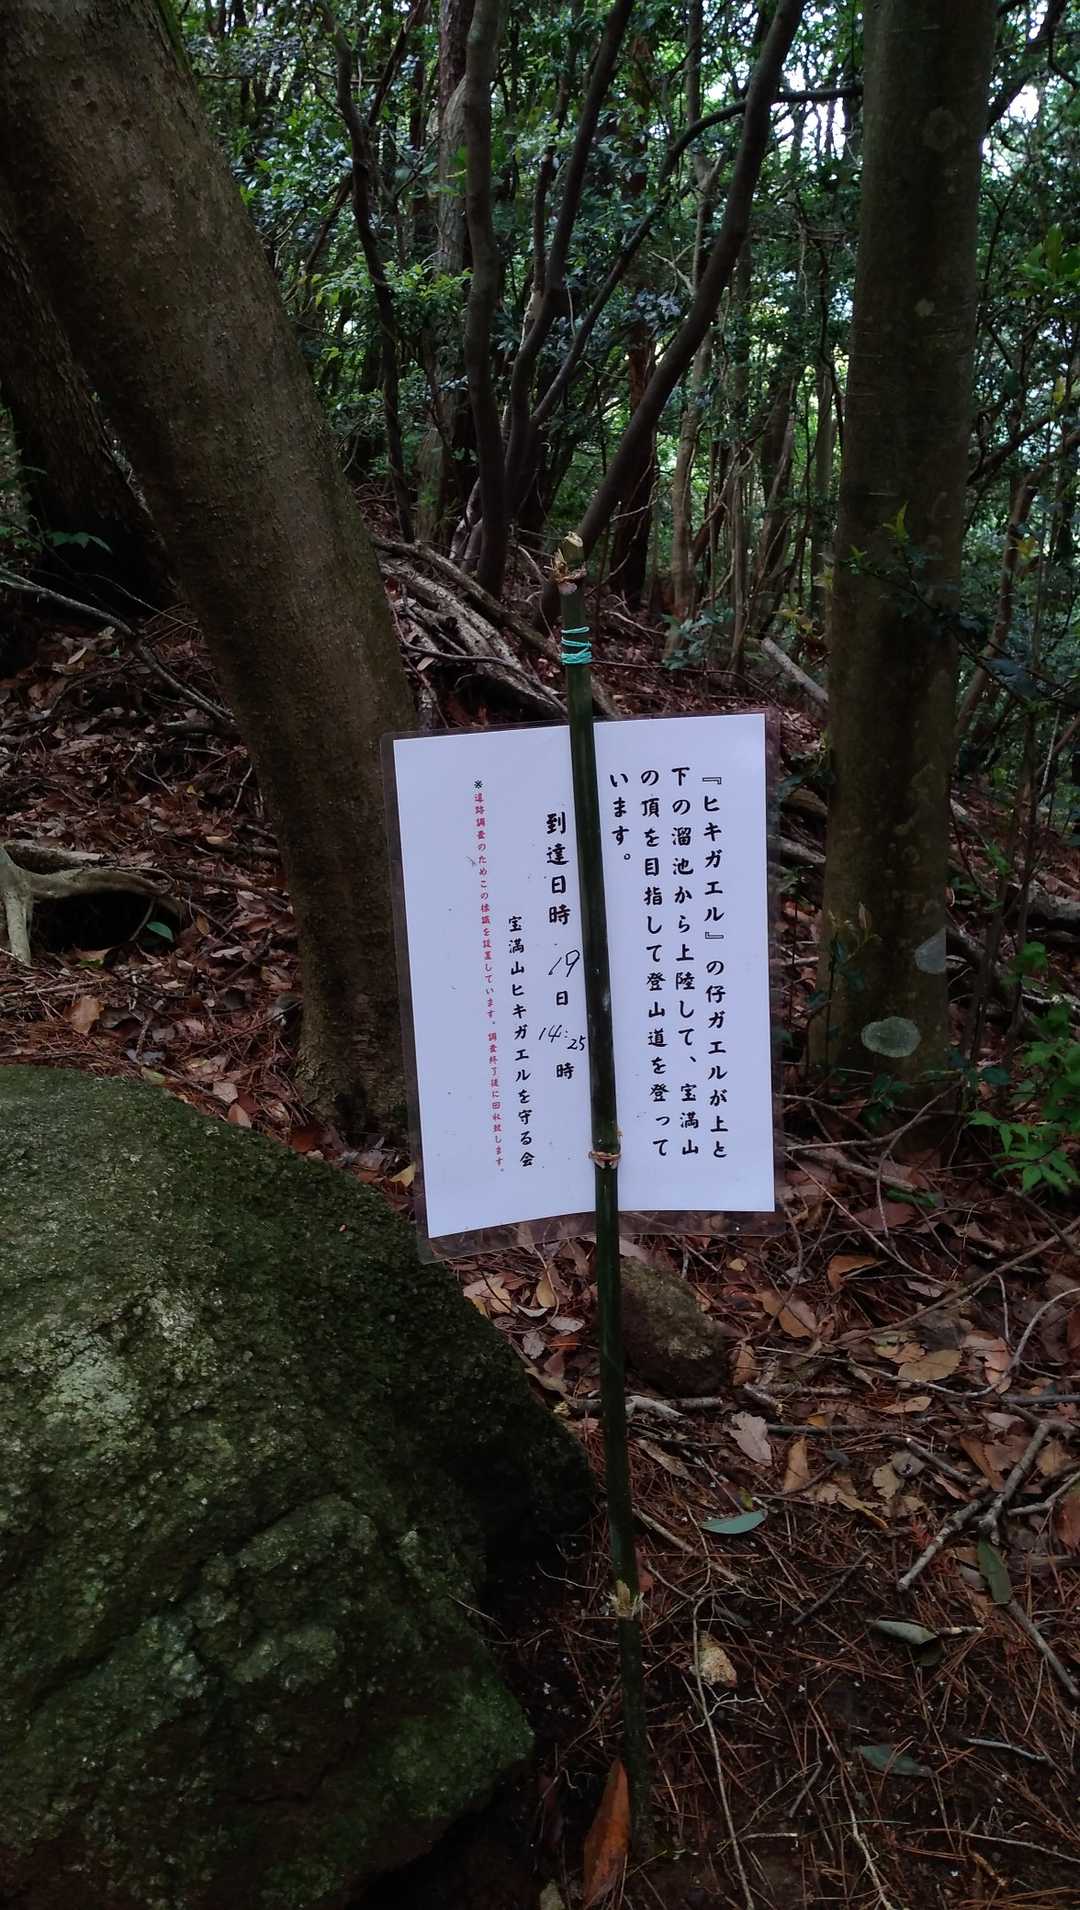 『ヒキガエル』の仔ガエルが上と
下の溜池から上陸して、宝満山
の頂を目指して登山道を登って
います。
到達日時 19日 14:25時
宝満山ヒキガエルを守る会
※遠路調査のためこの標識を設置しています。調査終了後に回収致します。